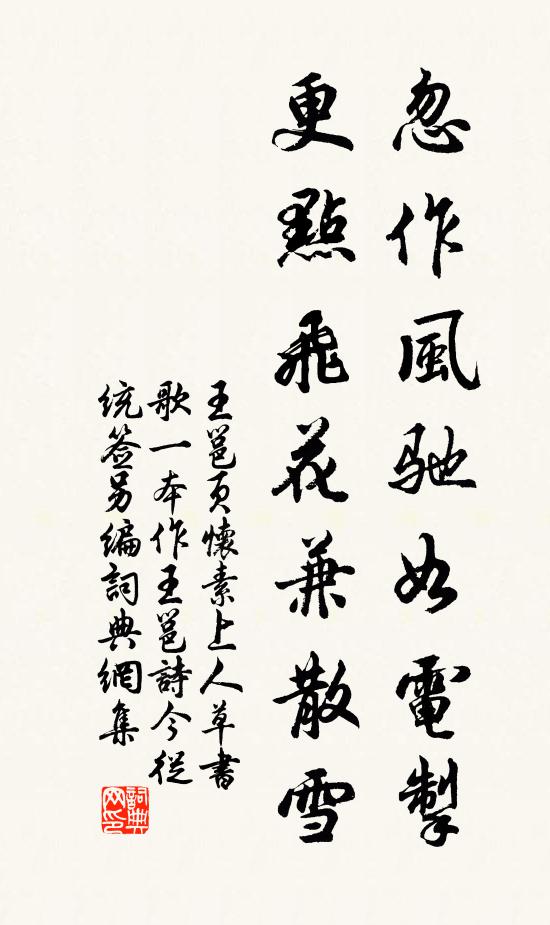 忽作風馳如電掣
更點飛花兼散雪
王邕頁懷素上人草書
歌一本作王邕詩今從
統簽另編詞典網集
詞典网印